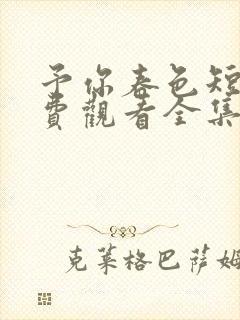 予你春色短
費觀看全集
克萊格巴萨姆